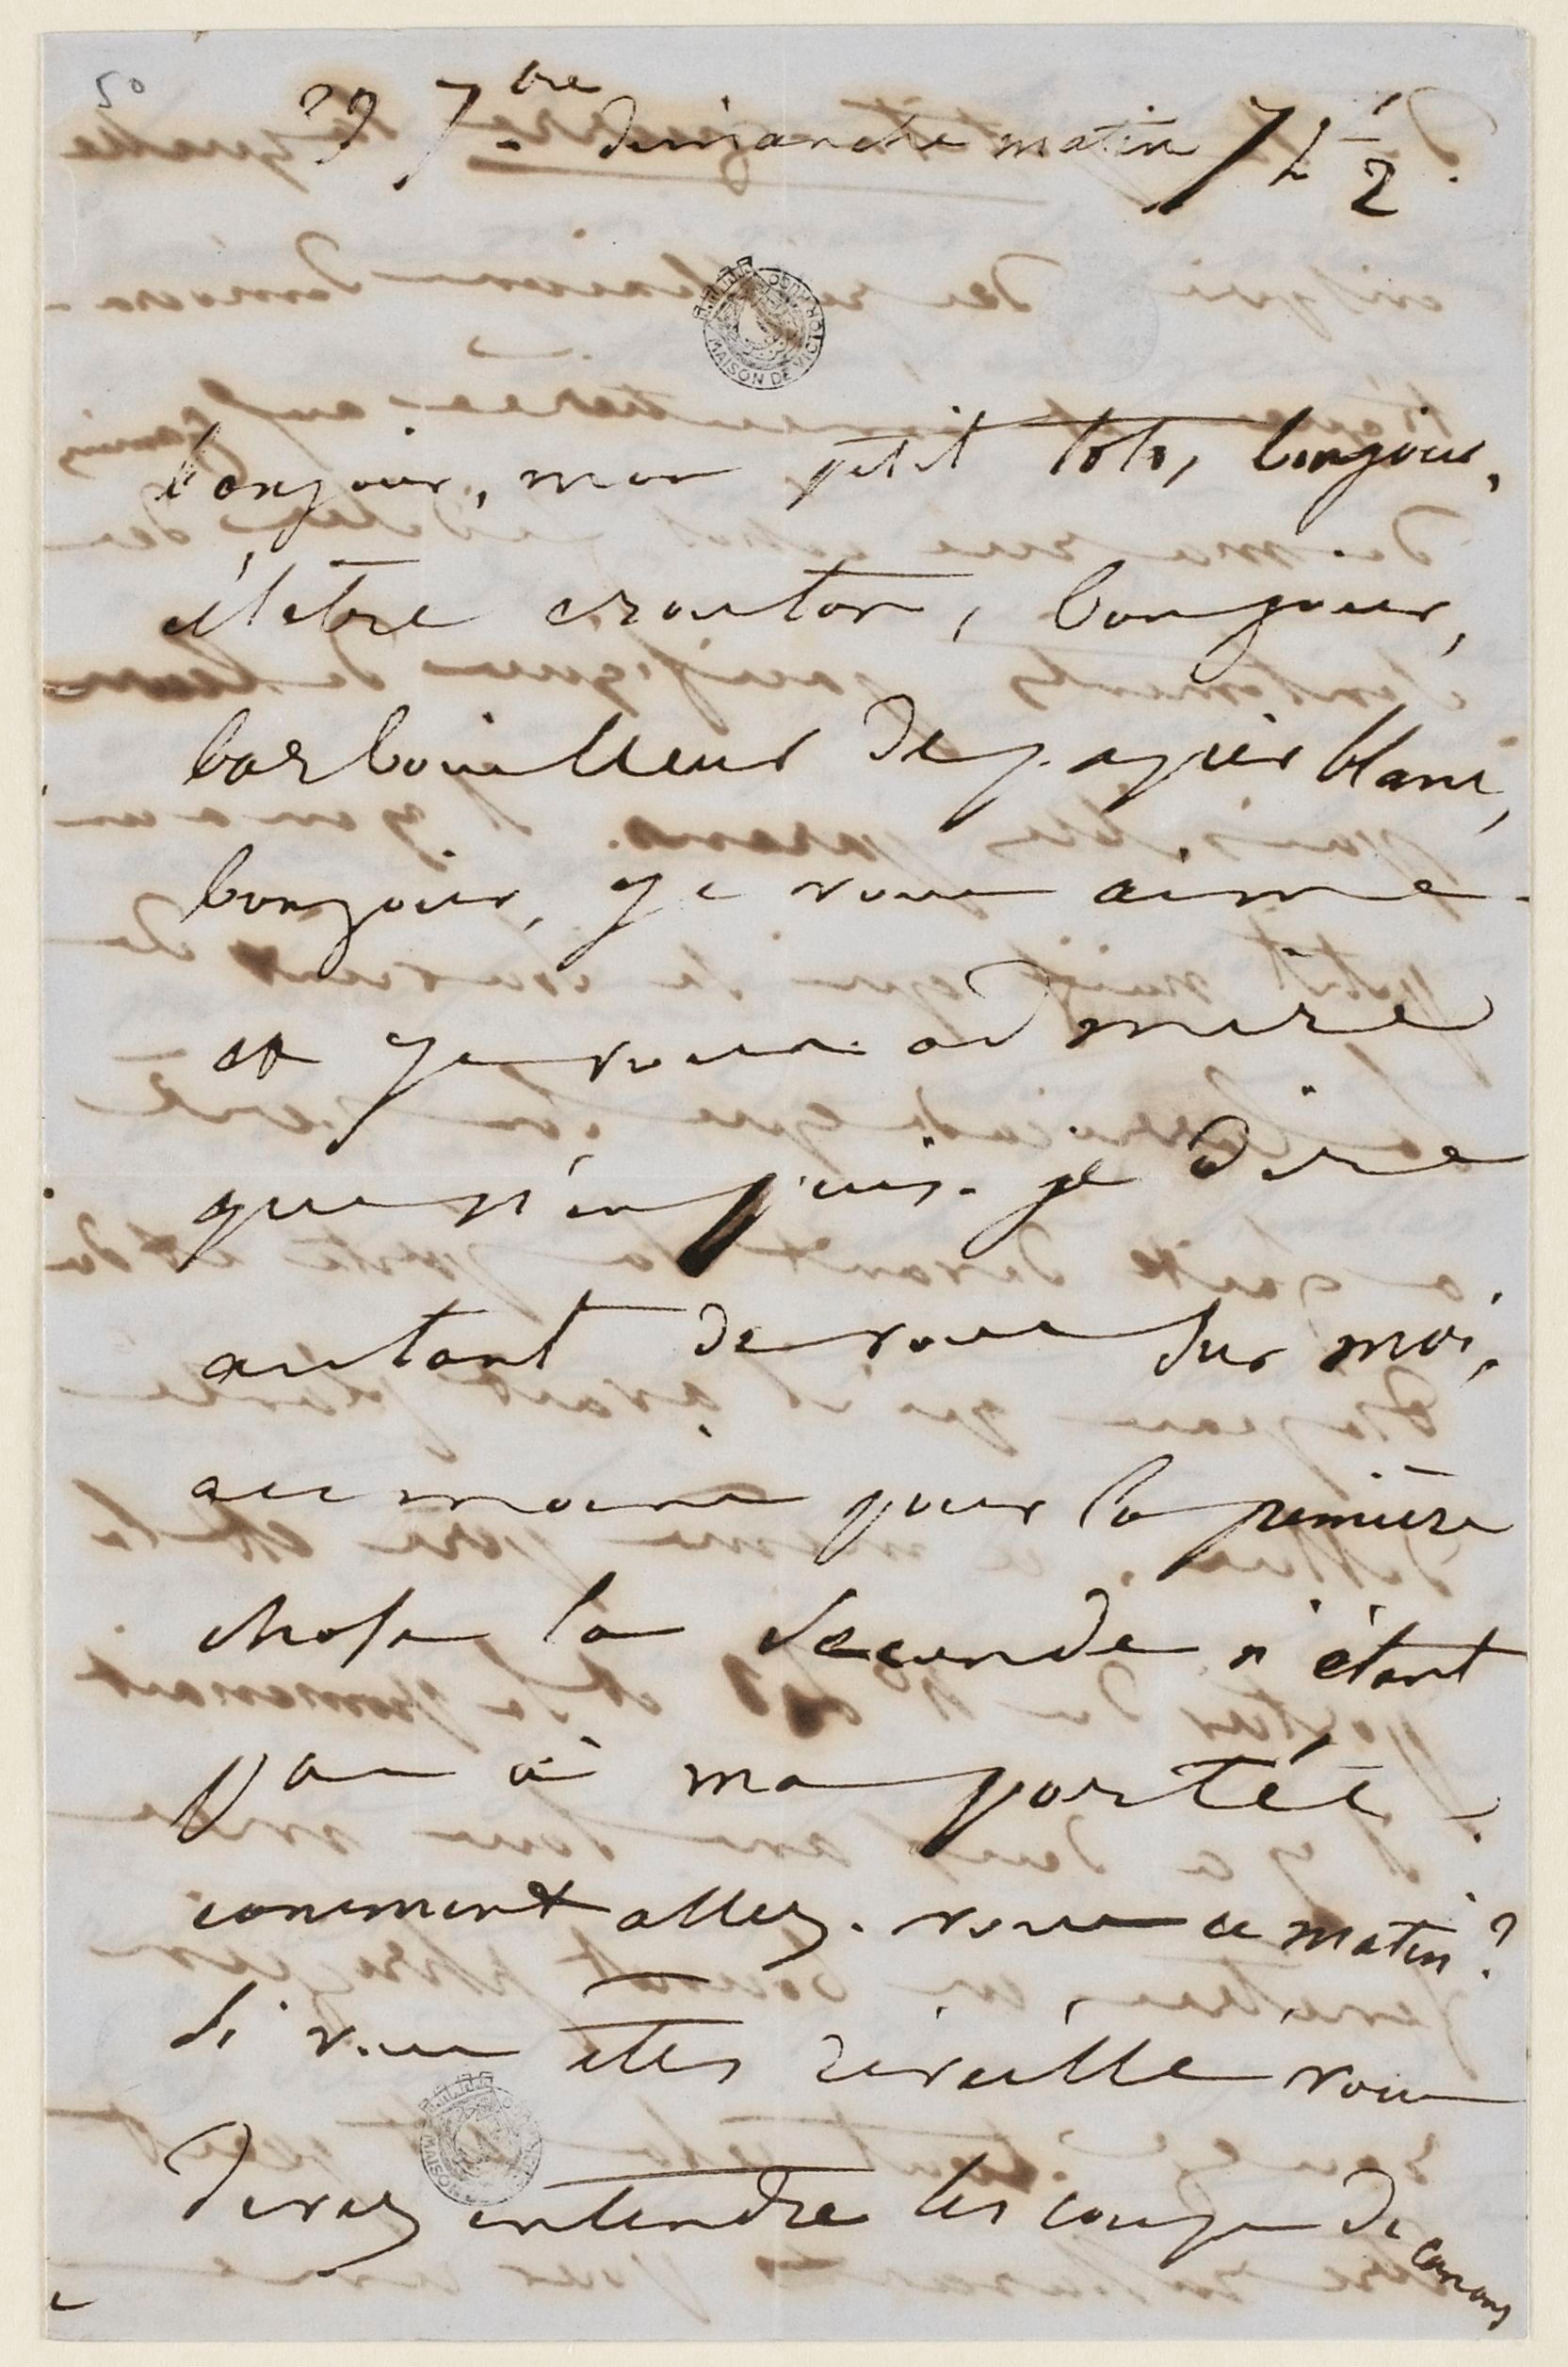 50
7bre dimanche matin 7 h ½.
MAISON DE VICTOR HUGO
bonjour, mon petit toto, bonjour,
célèbre crouton, bonjour,
barbouilleur de papier blanc,
bonjour, je vous aime
et je vous admire
que n'en puis-je dire
autant de vous sur moi,
au moins pour la première
chose la seconde n'étant
pas à ma portée.
comment allez-vous ce matin?
Si vous êtes réveillé vous
devez entendre les coups de canons